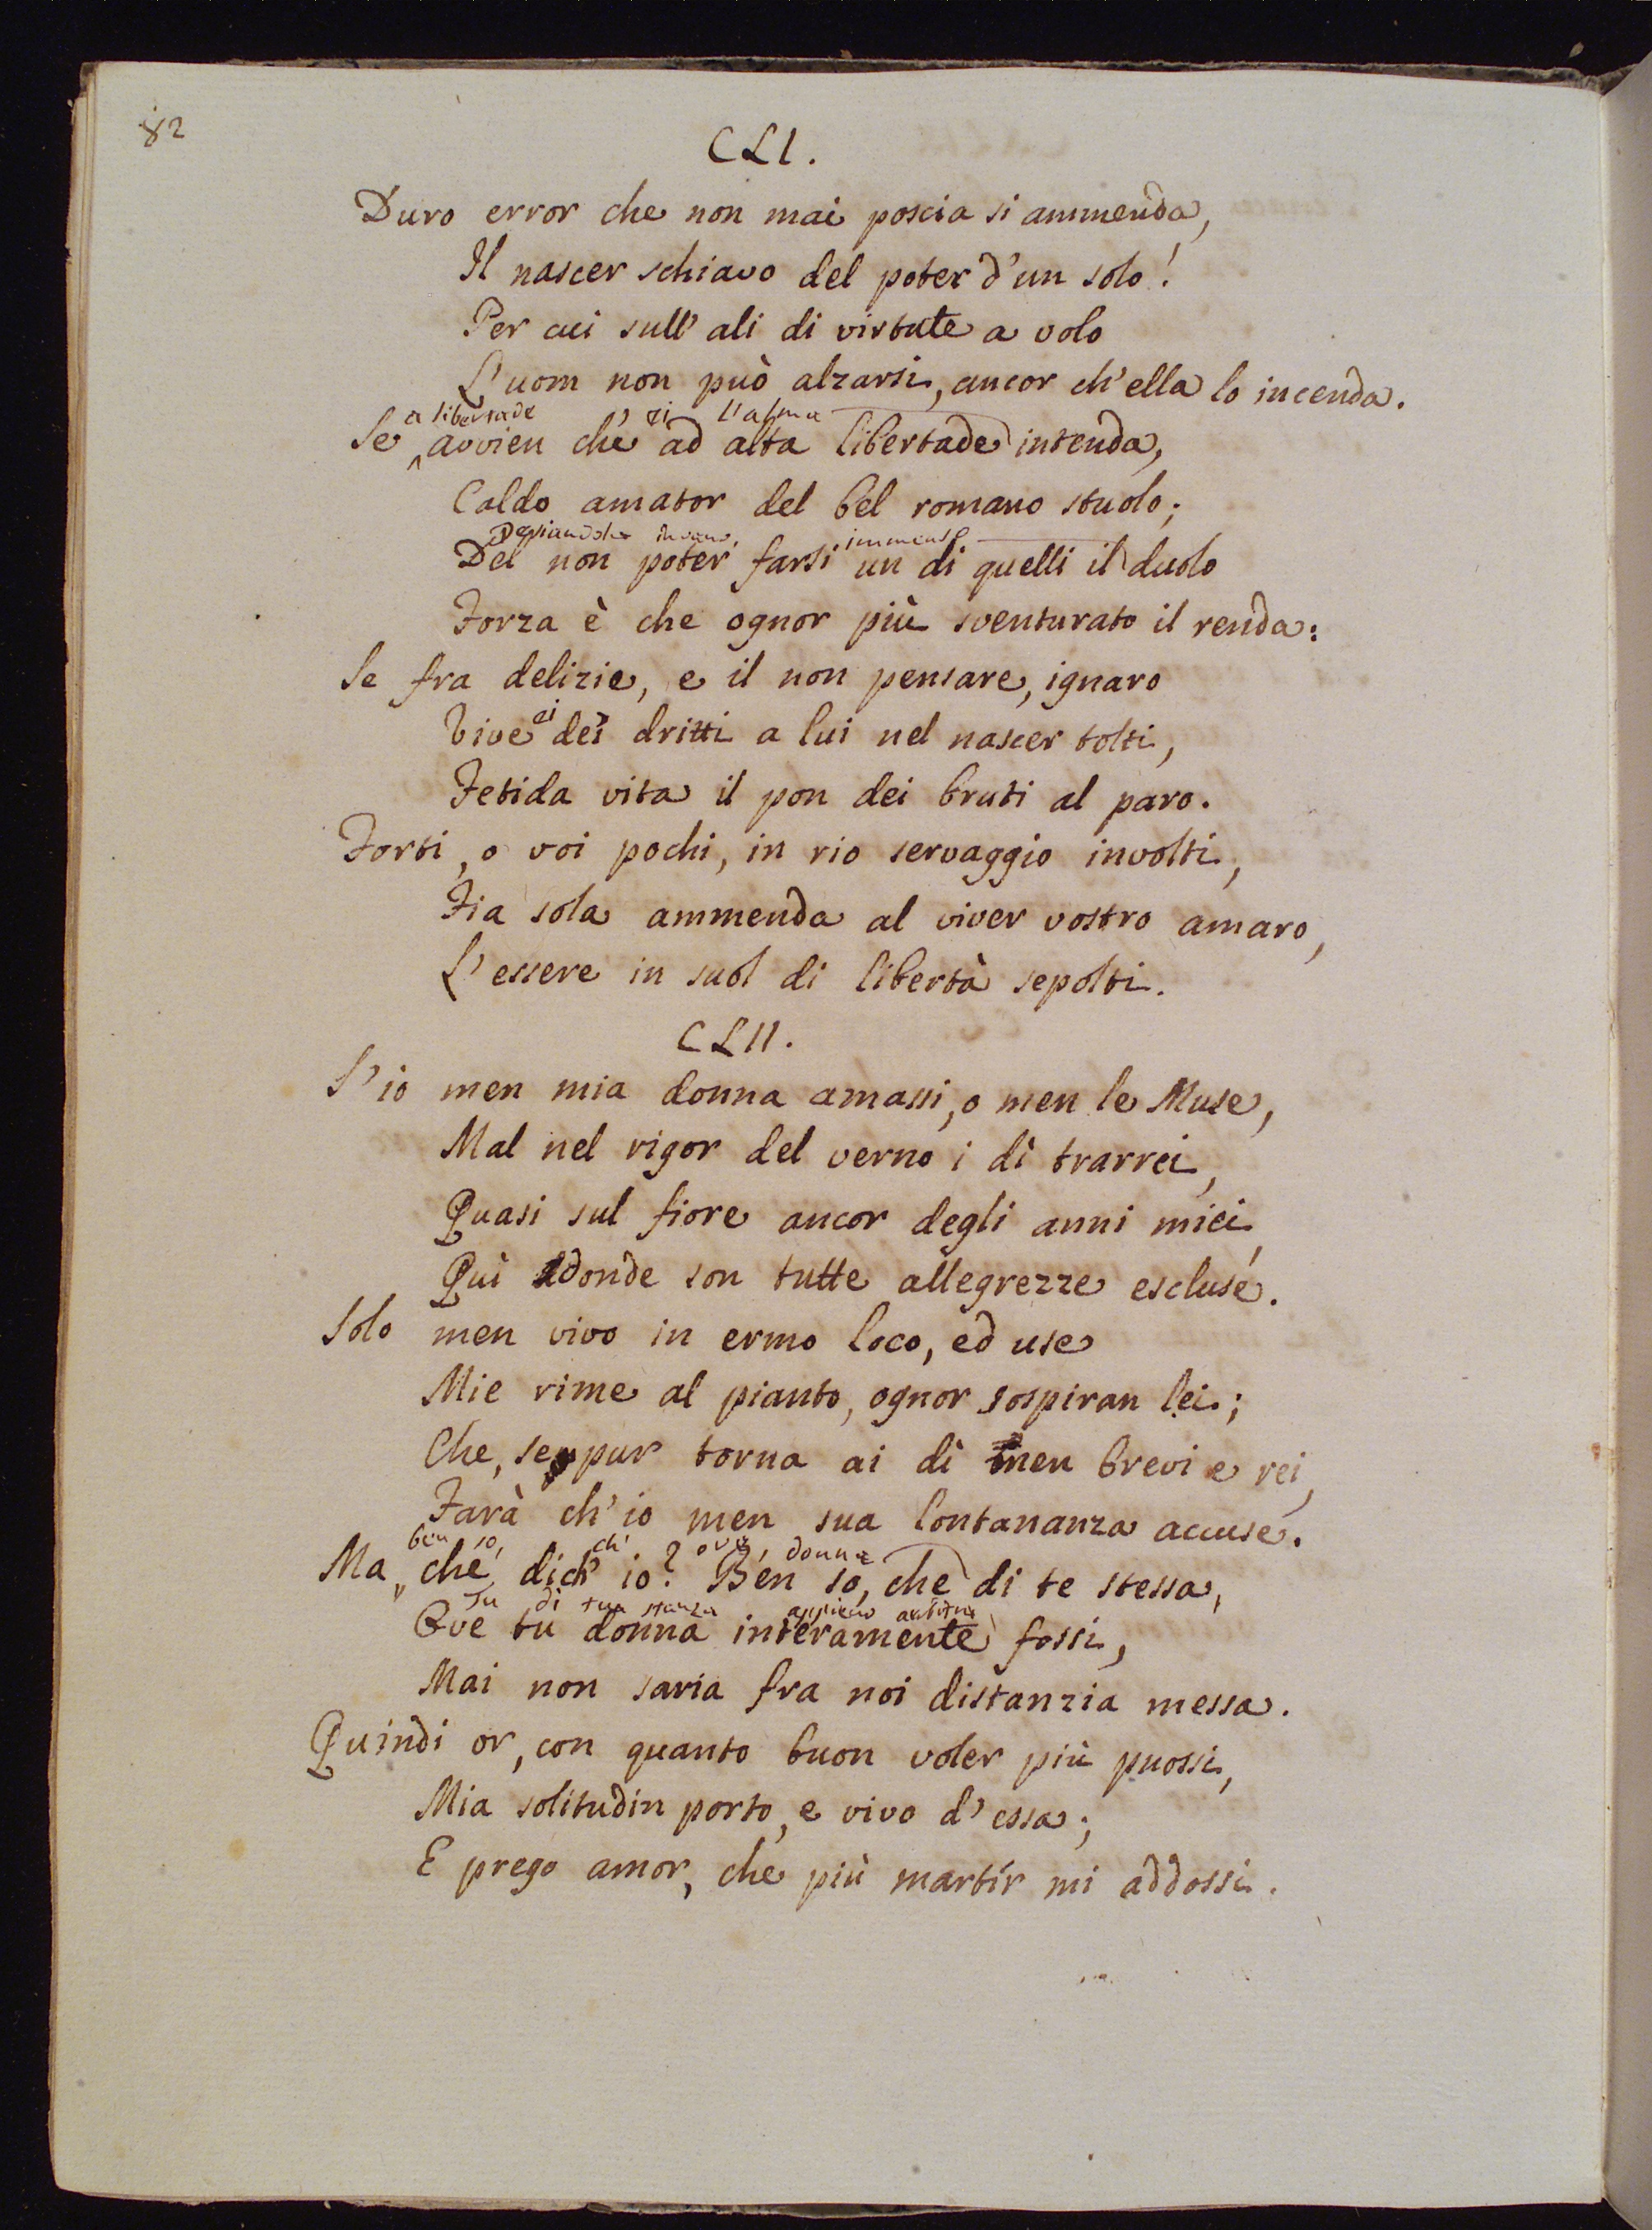 82
CLI.
Duro error che non mai poscia si ammenda,
Il nascer schiavo del poter d'un solo!
Per cui sull' ali di virtute a volo
L'uom non può alzarsi, ancor ch'ella lo incenda.
a libertade ei l'alma
Se avvien che ad alta libertade intenda,
Caldo amator del bel romano stuolo;
Desiandolo invano, immenso
Del non poter farsi un di quelli il duolo
Forza è che ognor più sventurato il renda:
Se fra delizie, e il non pensare, ignaro
ei
Vive dei dritti a lui nel nascer tolti,
Fetida vita il pon dei bruti al paro.
Forti, o voi pochi, in rio servaggio involti,
Fia sola ammenda al viver vostro amaro,
L'essere in suol di libertà sepolti.
CLII.
S'io men mia donna amassi, o men le Muse,
Mal nel rigor del verno i dì trarrei,
Quasi sul fiore ancor degli anni miei,
Quì donde son tutte allegrezze escluse.
Solo men vivo in ermo loco, ed use
Mie rime al pianto, ognor sospiran lei;
Che, se pur torna ai dì men brevi e rei,
Farà ch'io men sua lontananza accuse.
ben so, ch' ove, donna
Ma, che dich' io? Ben so, che di te stessa,
Tu di tua stanza appieno arbitra
Ove tu donna interamente fossi,
Mai non saria fra noi distanzia messa.
Quindi or, con quanto buon voler più puossi,
Mia solitudin porto, e vivo d'essa;
E prego amor, che più martír mi addossi.